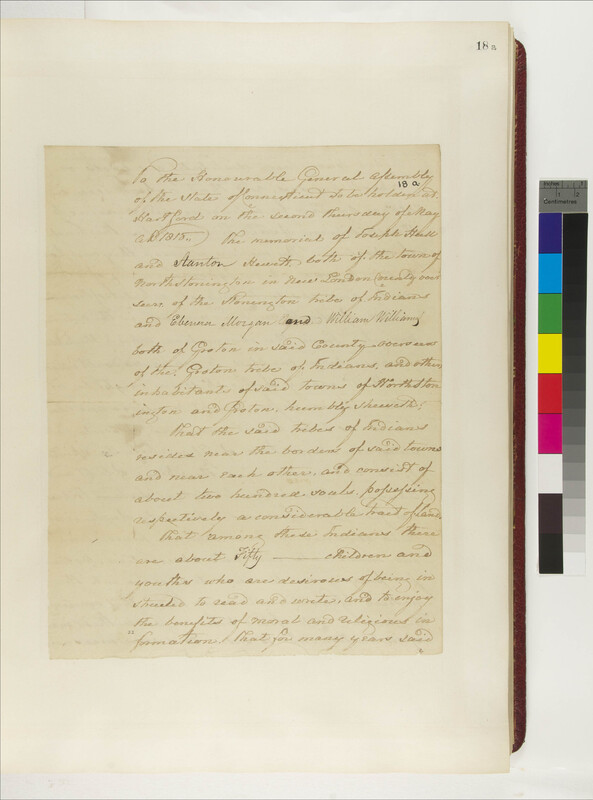 18 a
To the Honourable General Assembly
18 a
of the State of Connecticut to be holden at
Hartford on the second thursday of May
AD 1815. The memorial of Joseph Hull
and Stanton Hewett, both of the town of
North Stonington in New London County over
seers of the Stonington tribe of Indians
and Ebenezer Morgan and William Williams
both of Groton in said County overseers
of the Groton tribe of Indians, and other
inhabitants of said towns of North Ston
ington and Groton, humbly sheweth;
That the said tribes of Indians
resides near the borders of said towns
and near each other, and consist of
about two hundred souls, possessing
respectively a considerable tract of land.
that among these Indians there
are about Fifty children and
youths who are desirous of being in
structed to read and write, and to enjoy
the benefits of moral and religious in
"formation. That for many years said
Centimetres